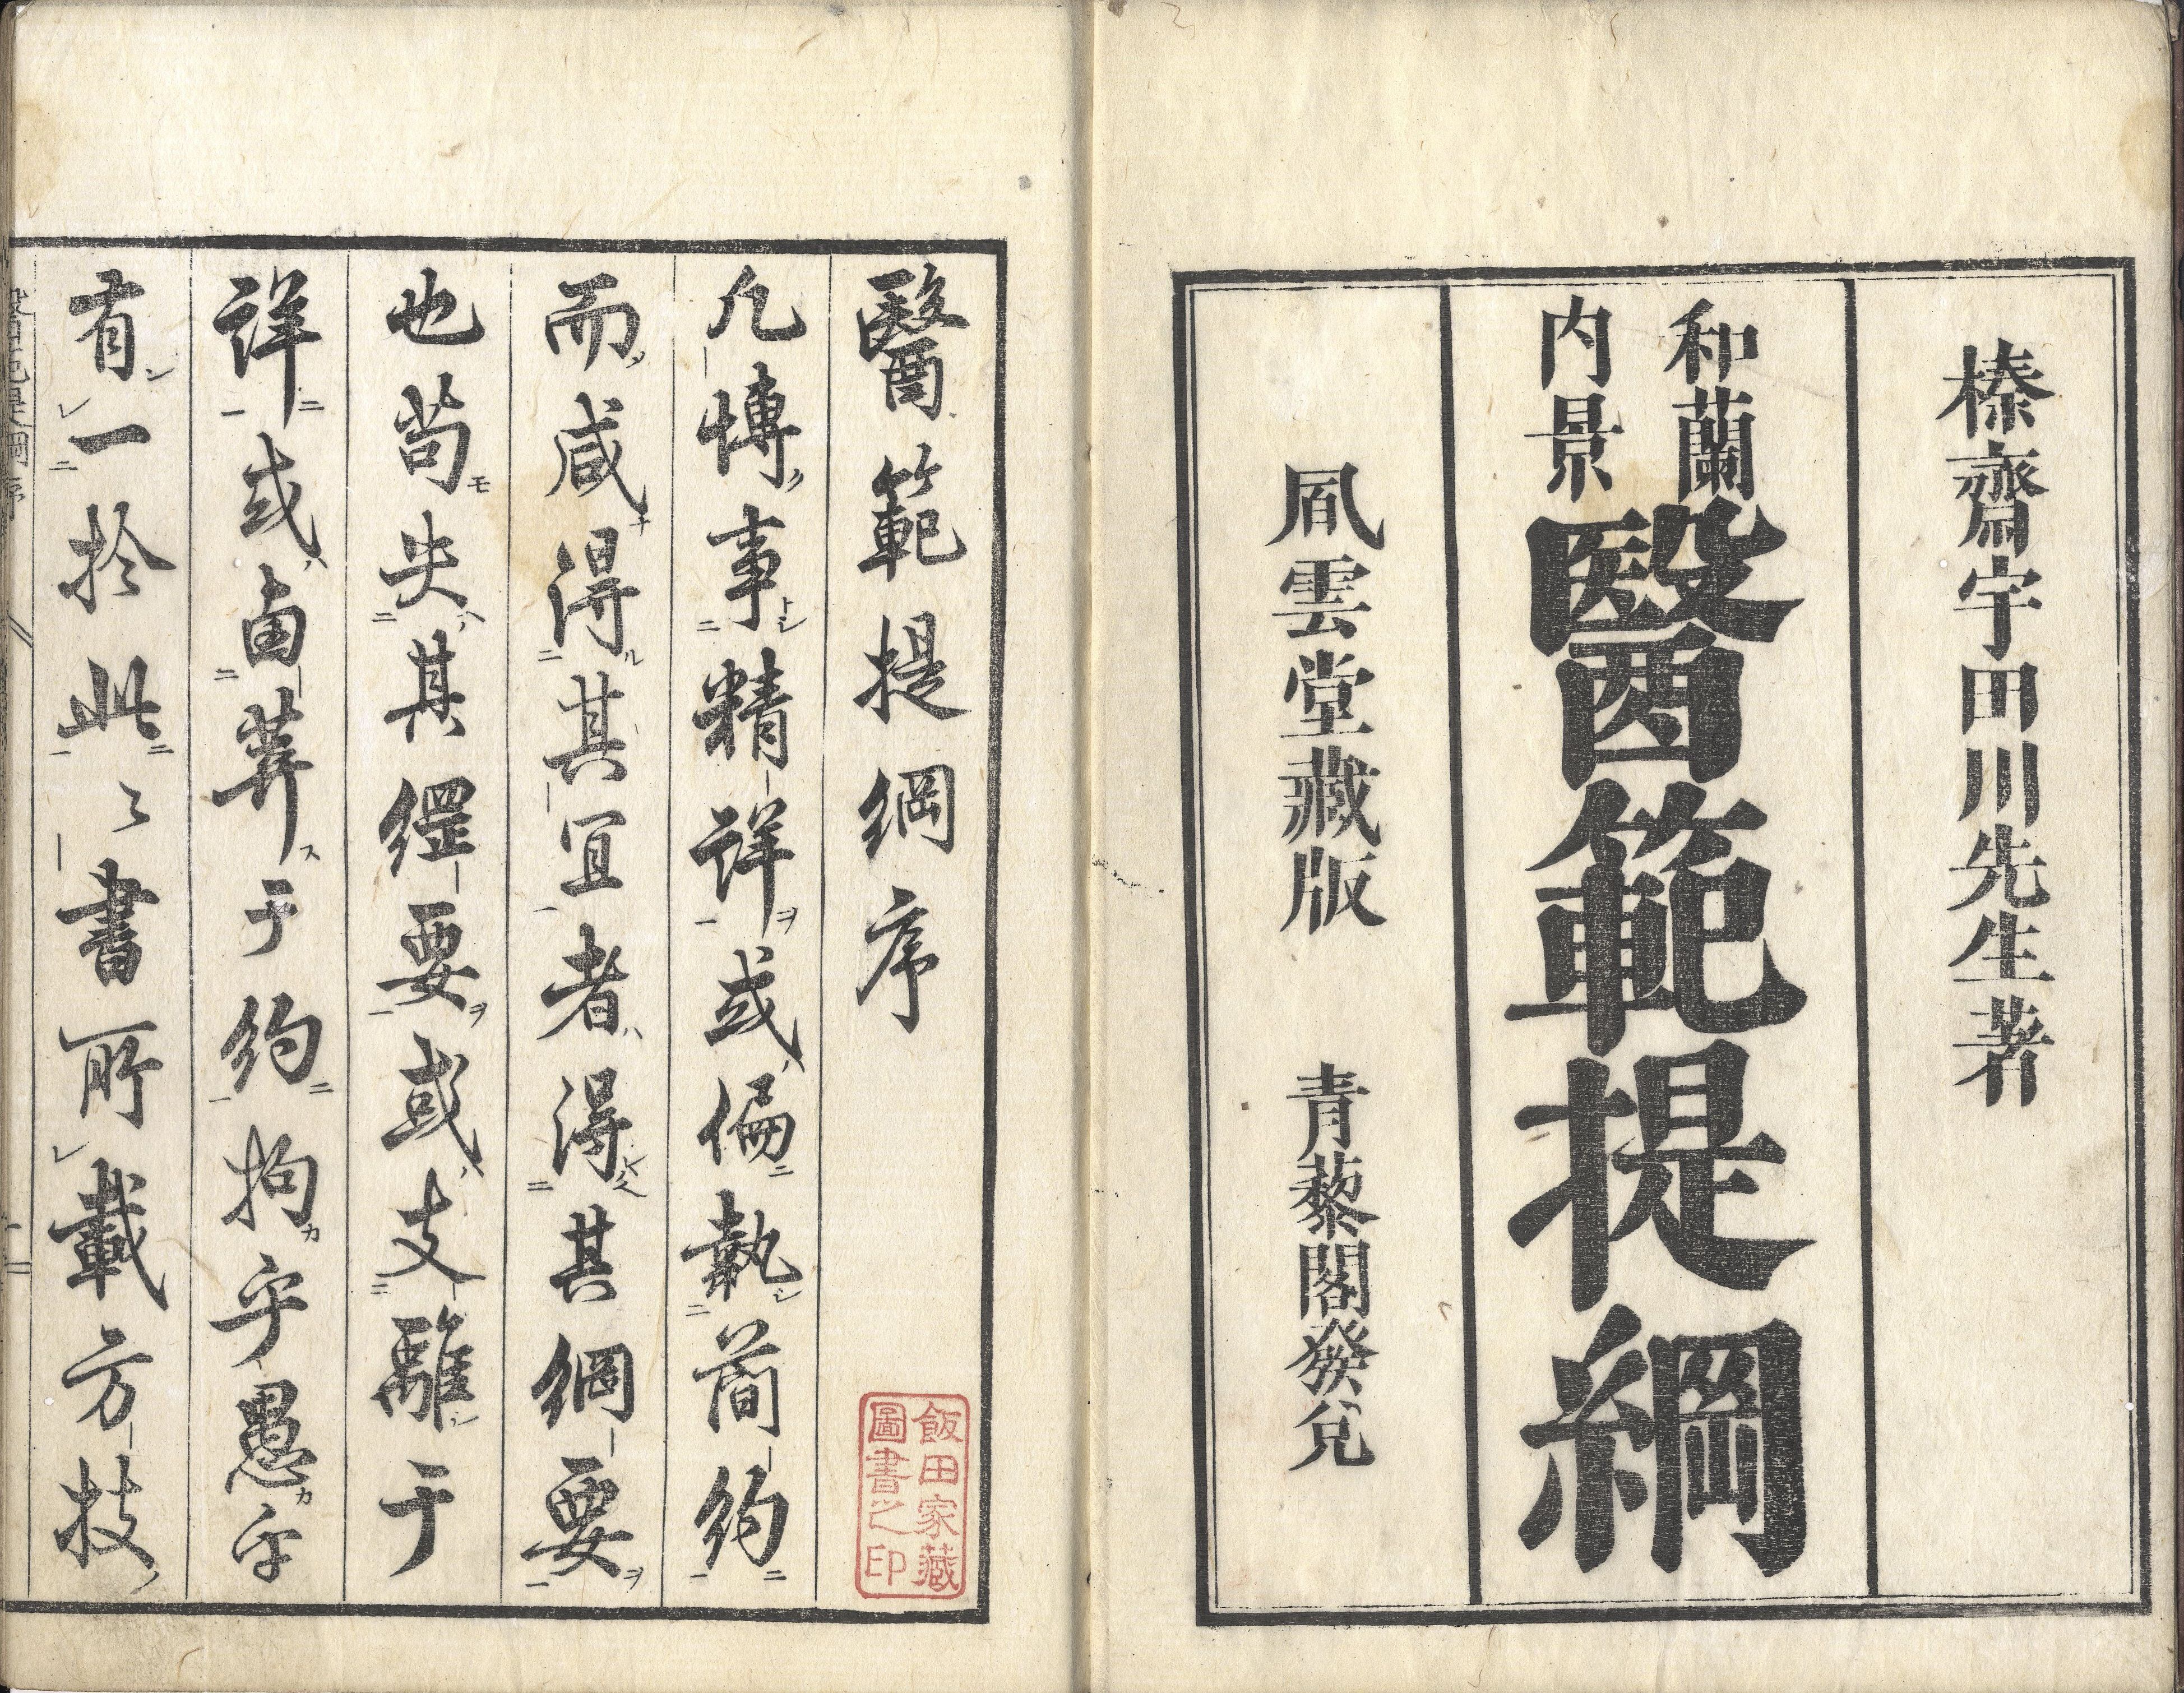 榛齋宇田川先生著
和蘭
内景
醫範提綱
風雲堂藏版　青藜閣發兌
醫範提綱序
飯田家藏
圖書之印
凡博事精詳或偏執簡約
而咸得其宜者得其綱要
也苟失其綱要或支離于
詳或鹵莽于約拘乎愚乎
有一於此〻書所載方技